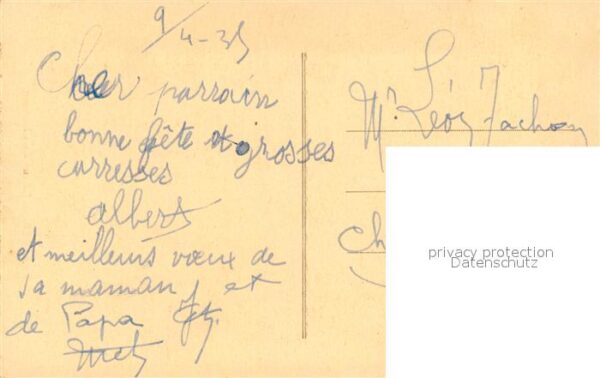 9/4-35
Cher parrain
bonne fête et grosses
carresses
albert
et meilleurs vœux de
sa maman et
de Papa
Mr. Léon Fachon
Ch
privacy protection
Datenschutz